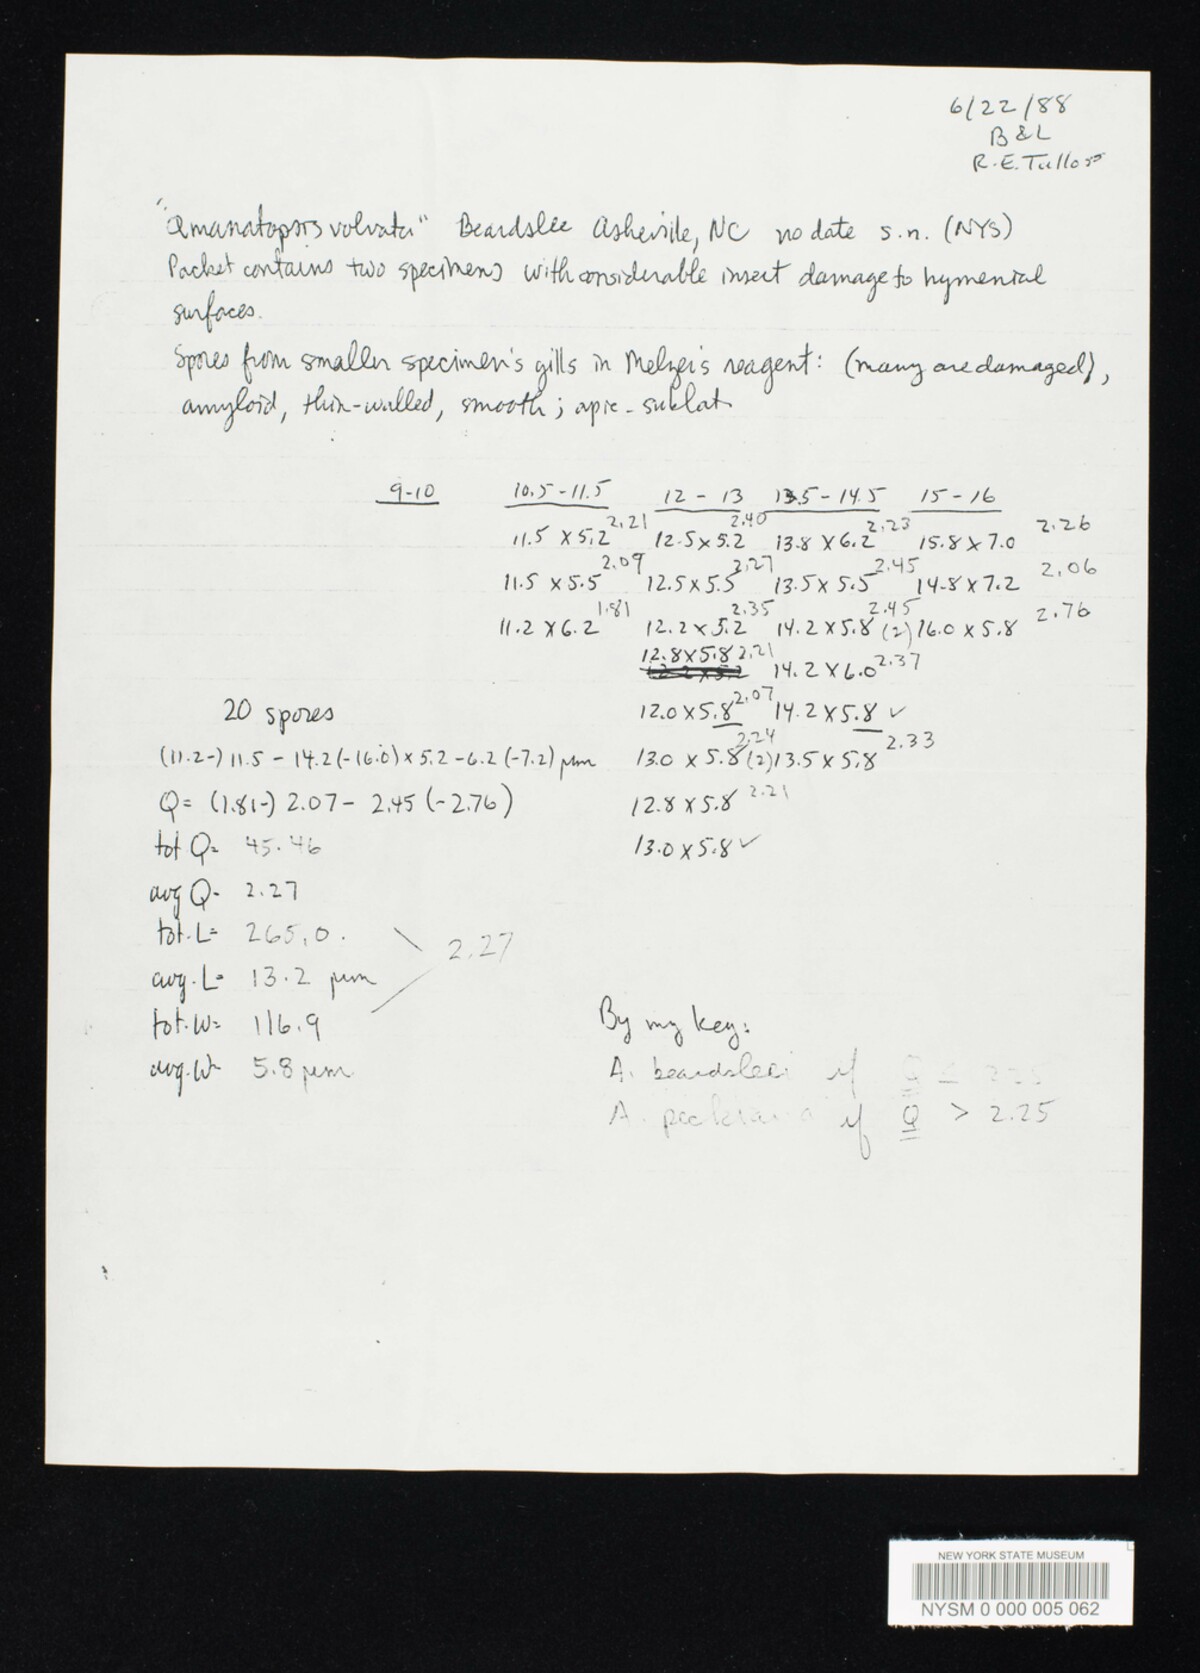 6/22/88
B & L
R.E. Tulloss
"Amanatopsis volvata" Beardslee Asheville, NC no date s.n. (NYS)
Packet contains two specimens with considerable insect damage to hymenial
surfaces.
Spores from smaller specimen's gills in Melzer's reagent: (many are damaged),
amyloid, thin-walled, smooth; apic. sublat.
9-10 10.5-11.5 12-13 13.5-14.5 15-16
11.5 x 5.2 2.21 12.5 x 5.2 2.40 13.8 x 6.2 2.23 15.8 x 7.0 2.26
11.5 x 5.5 2.09 12.5 x 5.5 2.27 13.5 x 5.5 2.45 14.8 x 7.2 2.06
11.2 x 6.2 1.81 12.2 x 5.2 2.35 14.2 x 5.8 2.45 (2) 16.0 x 5.8 2.76
12.8 x 5.8 2.21 14.2 x 6.0 2.37
12.0 x 5.8 2.07 14.2 x 5.8 ✓
20 spores
(11.2-) 11.5 - 14.2 (-16.0) x 5.2 - 6.2 (-7.2) µm 13.0 x 5.8 2.24 (2) 13.5 x 5.8 2.33
Q = (1.81-) 2.07 - 2.45 (-2.76) 12.8 x 5.8 2.21
tot Q = 45.46 13.0 x 5.8 ✓
avg Q = 2.27
tot. L = 265.0.
2.27
avg. L = 13.2 µm
tot. W = 116.9
avg. W = 5.8 µm
By my key:
A. beardslei if Q ≤ 2.25
A. peckiana if Q > 2.25
NEW YORK STATE MUSEUM
NYSM 0 000 005 062